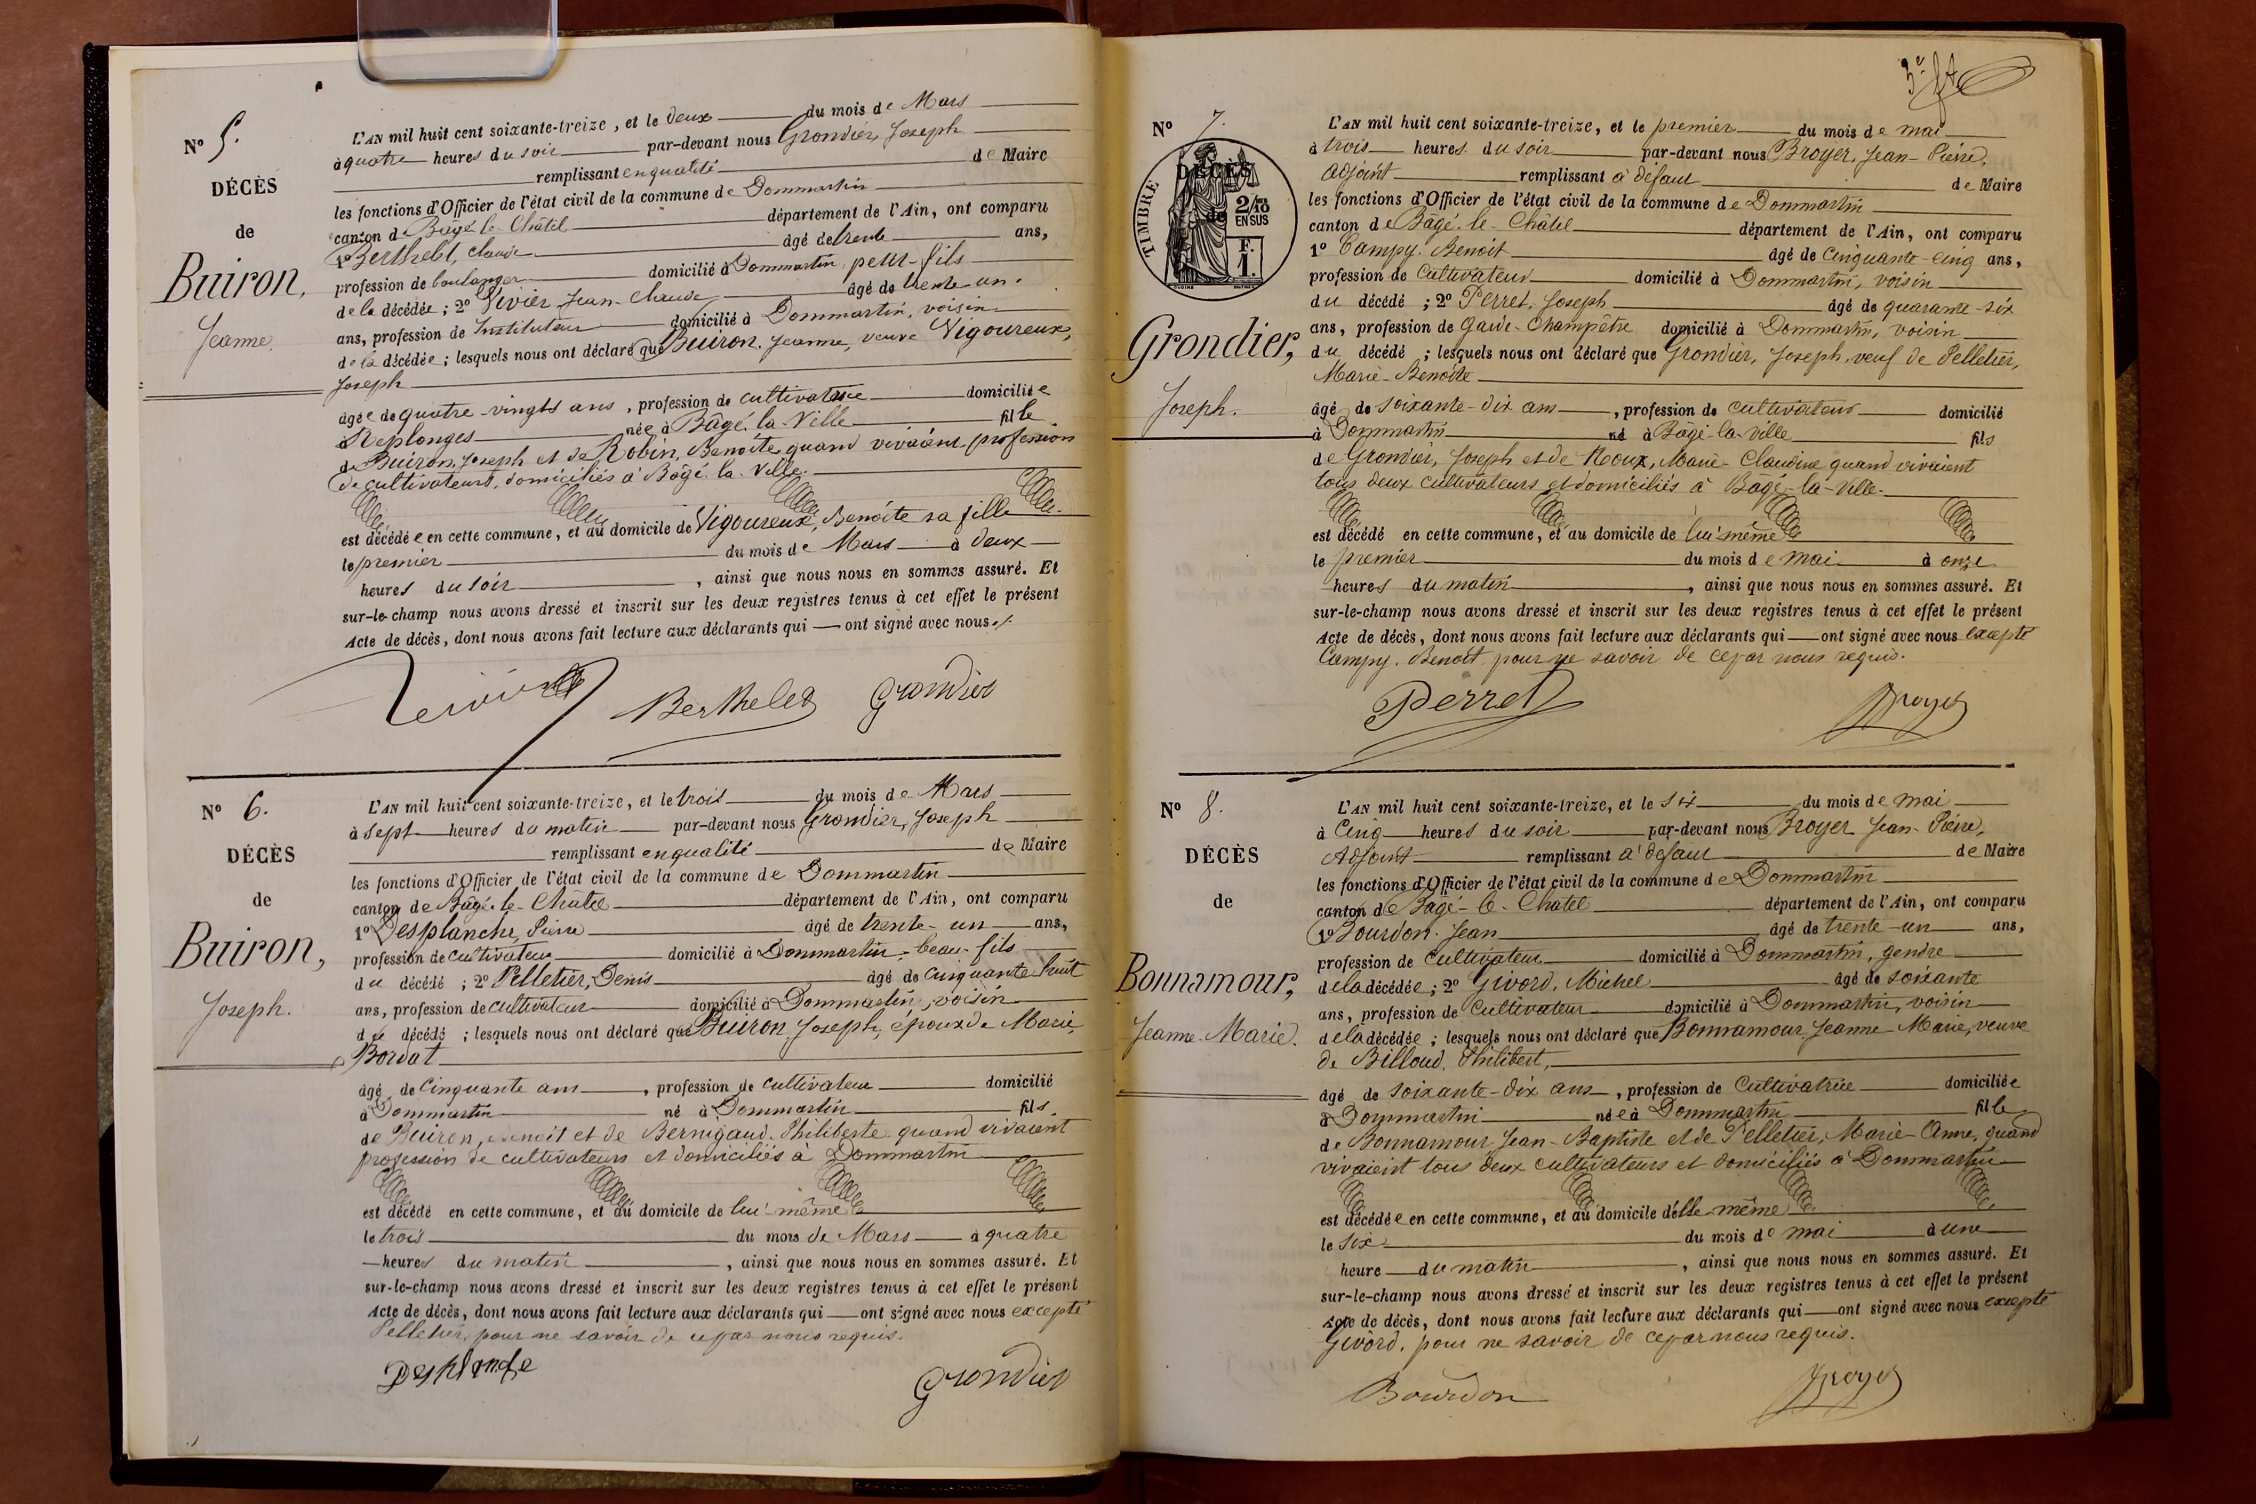 N° 5.
DÉCÈS
de
Buiron,
Jeanne.
L'AN mil huit cent soixante-treize, et le deux du mois de Mars
à quatre heures du soir par-devant nous Grondier, Joseph
remplissant en qualité de Maire
les fonctions d'Officier de l'état civil de la commune de Dommartin
canton de Bâgé-le-Châtel département de l'Ain, ont comparu
1° Berthelet, Claude âgé de trente ans,
profession de boulanger domicilié à Dommartin, petit-fils
de la décédée ; 2° Jean-Claude âgé de trente un
ans, profession de Instituteur domicilié à Dommartin, voisin
de la décédée ; lesquels nous ont déclaré que Buiron, Jeanne, veuve Vigoureux,
Joseph
âgée de quatre-vingts ans, profession de cultivatrice domiciliée
à Replonges née à Bâgé-la-Ville fille
de Buiron, Joseph et de Robin, Benoîte quand vivaient profession
de cultivateurs, domiciliés à Bâgé-la-Ville.
est décédée en cette commune, et au domicile de Vigoureux, Benoîte sa fille
le premier du mois de Mars à deux
heures du soir, ainsi que nous nous en sommes assuré. Et
sur-le-champ nous avons dressé et inscrit sur les deux registres tenus à cet effet le présent
Acte de décès, dont nous avons fait lecture aux déclarants qui — ont signé avec nous.
Berthelet Grondier
N° 6.
DÉCÈS
de
Buiron,
Joseph.
L'AN mil huit cent soixante-treize, et le trois du mois de Mars
à sept heures du matin par-devant nous Grondier, Joseph
remplissant en qualité de Maire
les fonctions d'Officier de l'état civil de la commune de Dommartin
canton de Bâgé-le-Châtel département de l'Ain, ont comparu
1° Desplanche, Pierre âgé de trente-un ans,
profession de cultivateur domicilié à Dommartin, beau-fils
du décédé ; 2° Pelletier, Denis âgé de cinquante huit
ans, profession de cultivateur domicilié à Dommartin, voisin
du décédé ; lesquels nous ont déclaré que Buiron, Joseph, époux de Marie
Bordat
âgé de cinquante ans, profession de cultivateur domicilié
à Dommartin né à Dommartin fils
de Buiron, Benoit et de Bernigaud, Philiberte quand vivaient
profession de cultivateurs et domiciliés à Dommartin
est décédé en cette commune, et au domicile de lui-même
le trois du mois de Mars à quatre
heures du matin, ainsi que nous nous en sommes assuré. Et
sur-le-champ nous avons dressé et inscrit sur les deux registres tenus à cet effet le présent
Acte de décès, dont nous avons fait lecture aux déclarants qui — ont signé avec nous excepté
Pelletier, pour ne savoir de ce par nous requis.
Desplanche Grondier
3e ft
N° 7.
TIMBRE
2/10 EN SUS
F. 1.
DÉCÈS
de
Grondier,
Joseph.
L'AN mil huit cent soixante-treize, et le premier du mois de mai
à trois heures du soir par-devant nous Broyer, Jean-Pierre,
adjoint remplissant à défaut de Maire
les fonctions d'Officier de l'état civil de la commune de Dommartin
canton de Bâgé-le-Châtel département de l'Ain, ont comparu
1° Campy, Benoit âgé de cinquante-cinq ans,
profession de Cultivateur domicilié à Dommartin, voisin
du décédé ; 2° Perret, Joseph âgé de quarante-six
ans, profession de Garde-Champêtre domicilié à Dommartin, voisin
du décédé ; lesquels nous ont déclaré que Grondier, Joseph, veuf de Pelletier,
Marie-Benoîte
âgé de soixante-dix ans, profession de cultivateur domicilié
à Dommartin né à Bâgé-la-Ville fils
de Grondier, Joseph et de Roux, Marie-Claudine quand vivaient
tous deux cultivateurs et domiciliés à Bâgé-la-Ville.
est décédé en cette commune, et au domicile de lui-même
le premier du mois de mai à onze
heures du matin, ainsi que nous nous en sommes assuré. Et
sur-le-champ nous avons dressé et inscrit sur les deux registres tenus à cet effet le présent
Acte de décès, dont nous avons fait lecture aux déclarants qui — ont signé avec nous excepté
Campy, Benoit, pour ne savoir de ce par nous requis.
Perret Broyer
N° 8.
DÉCÈS
de
Bonnamour,
Jeanne-Marie.
L'AN mil huit cent soixante-treize, et le six du mois de mai
à cinq heures du soir par-devant nous Broyer Jean-Pierre,
Adjoint remplissant à défaut de Maire
les fonctions d'Officier de l'état civil de la commune de Dommartin
canton de Bâgé-le-Châtel département de l'Ain, ont comparu
1° Bourdon, Jean âgé de trente-un ans,
profession de Cultivateur domicilié à Dommartin, gendre
de la décédée ; 2° Givord, Michel âgé de soixante
ans, profession de Cultivateur domicilié à Dommartin, voisin
de la décédée ; lesquels nous ont déclaré que Bonnamour, Jeanne-Marie, veuve
de Billoud, Philibert,
âgé de soixante-dix ans, profession de Cultivatrice domiciliée
à Dommartin née à Dommartin fille
de Bonnamour Jean-Baptiste et de Pelletier, Marie-Anne, quand
vivaient tous deux cultivateurs et domiciliés à Dommartin
est décédée en cette commune, et au domicile d'elle-même
le six du mois de mai à une
heure du matin, ainsi que nous nous en sommes assuré. Et
sur-le-champ nous avons dressé et inscrit sur les deux registres tenus à cet effet le présent
Acte de décès, dont nous avons fait lecture aux déclarants qui — ont signé avec nous excepté
Givord, pour ne savoir de ce par nous requis.
Bourdon Broyer